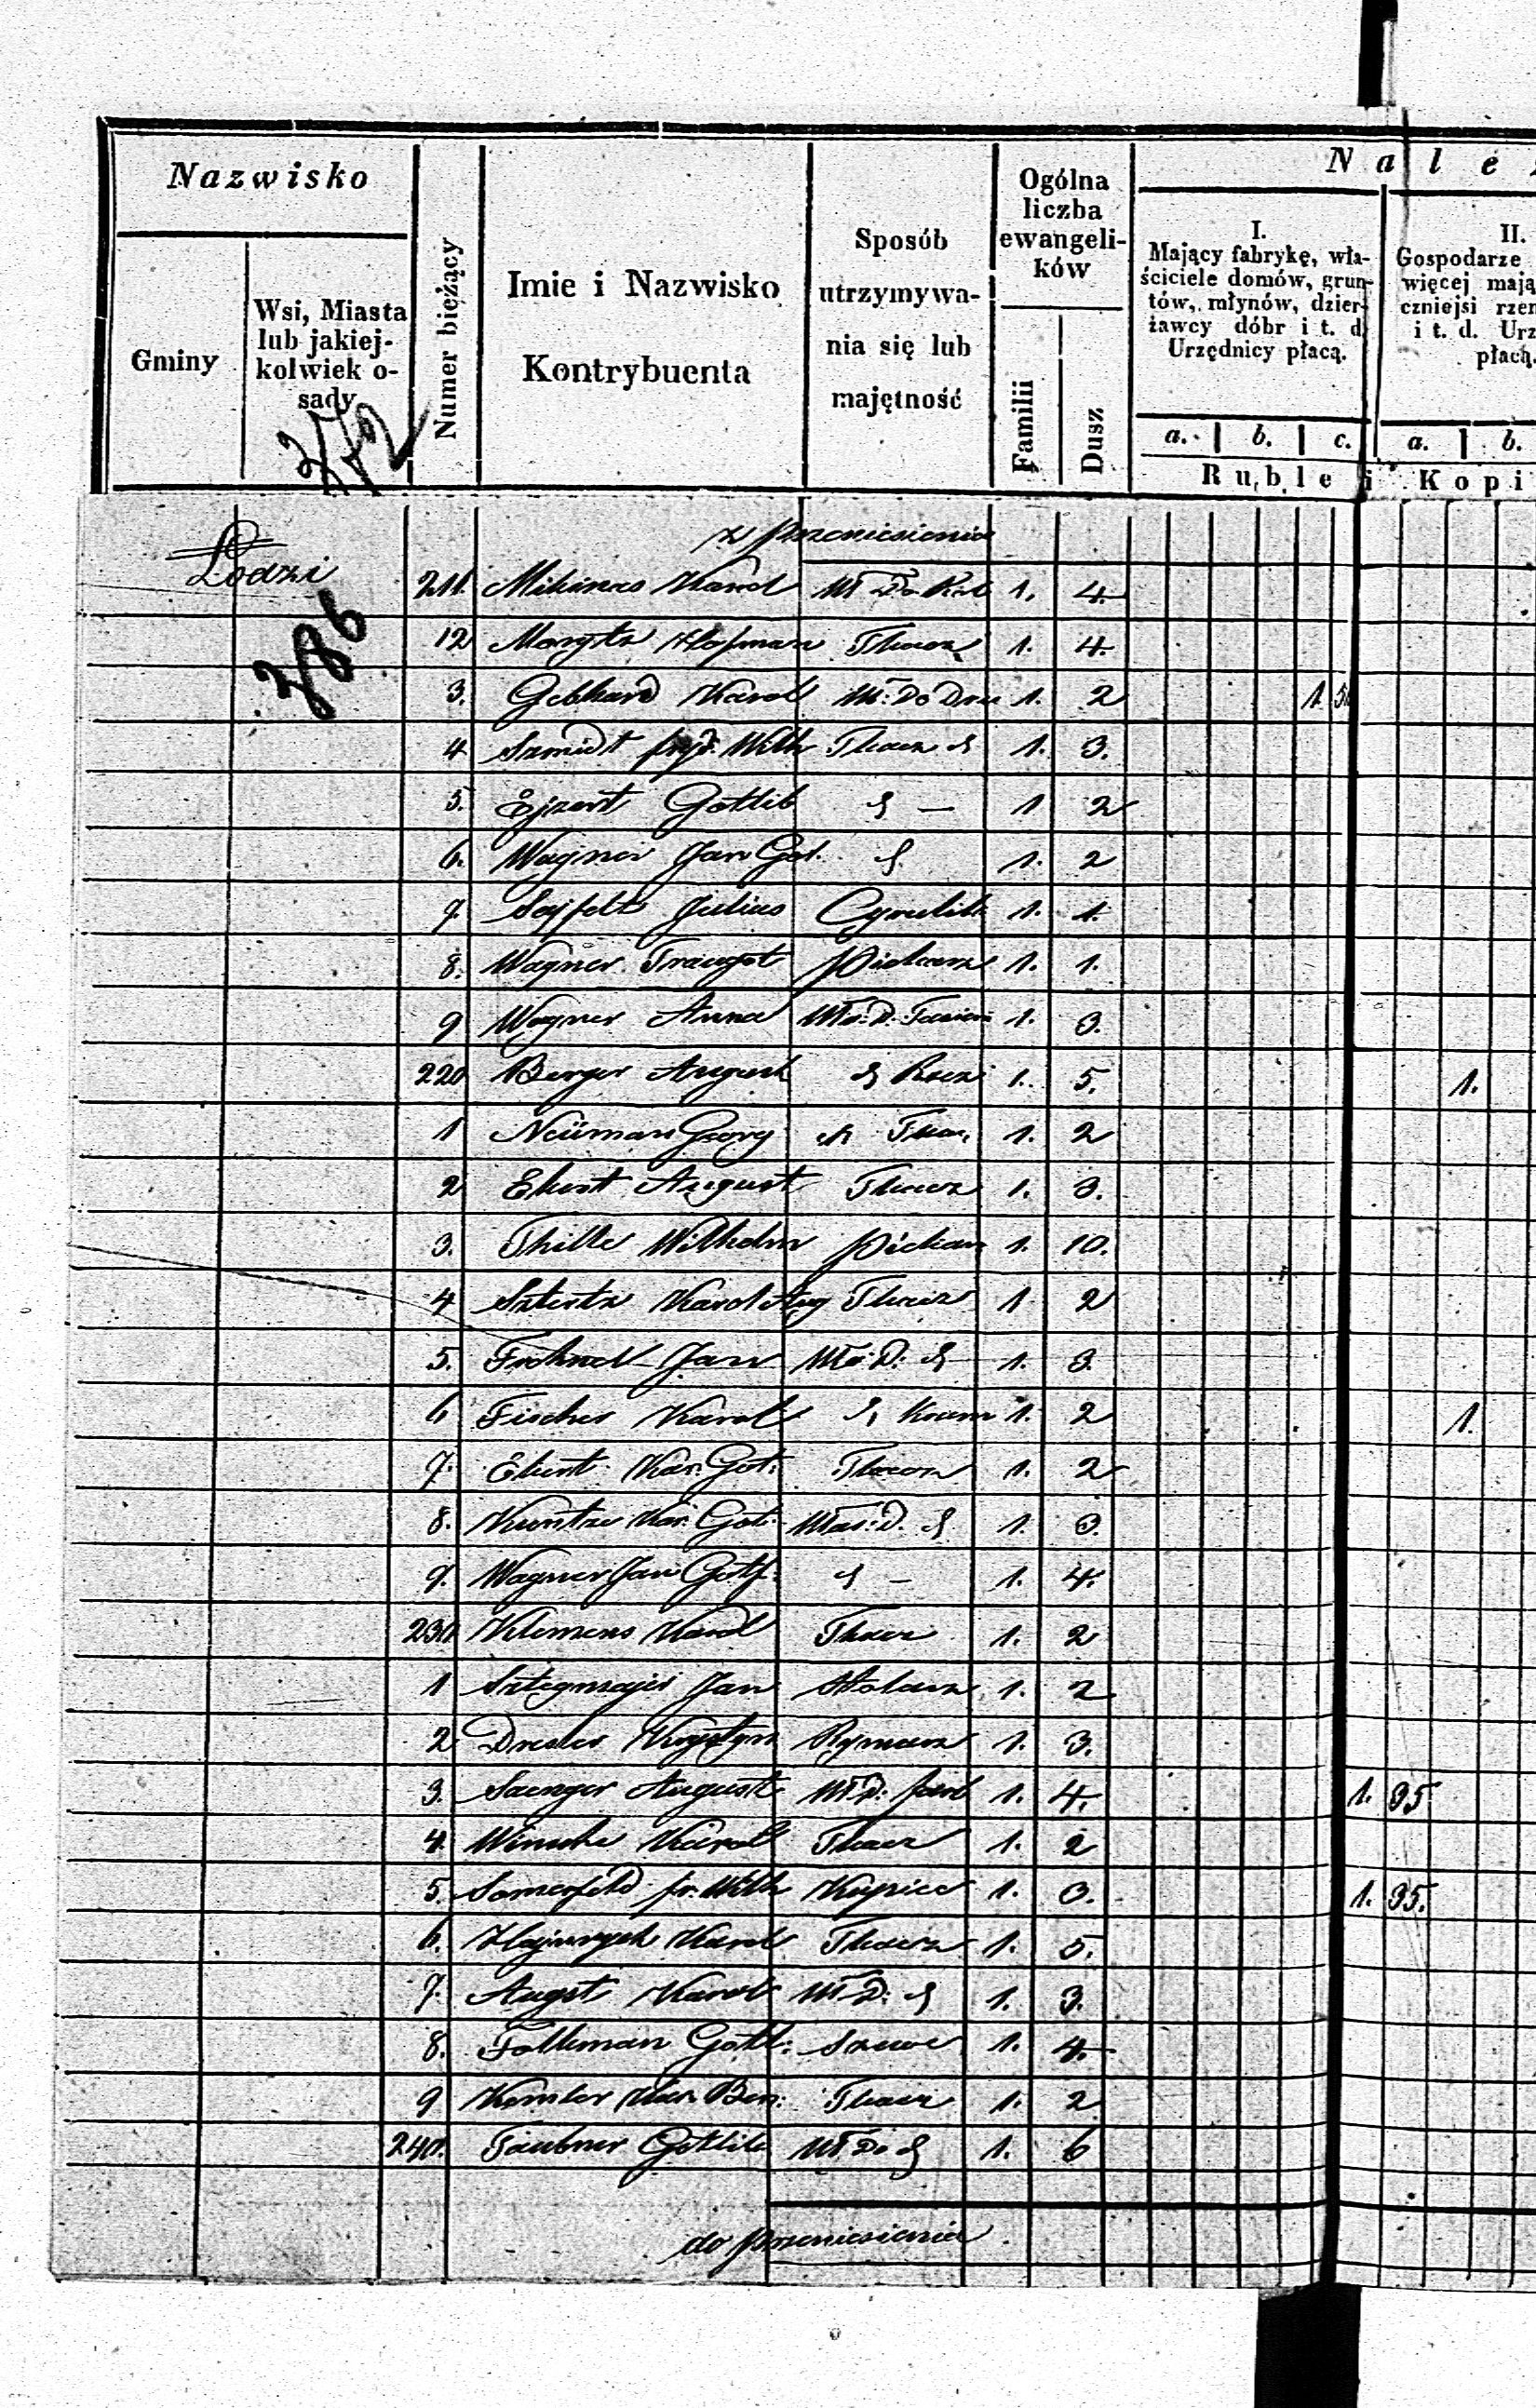 Nazwisko
Gminy
Wsi, Miasta
lub jakiej-
kolwiek o-
sady
Numer bieżący
Imie i Nazwisko
Kontrybuenta
Sposób
utrzymywa-
nia się lub
majętność
Ogólna
liczba
ewangeli-
ków
Familii
Dusz
N a l e ż
I.
Mający fabrykę, wła-
ściciele domów, grun-
tów, młynów, dzier-
żawcy dóbr i t. d.
Urzędnicy płacą.
a. b. c.
II.
Gospodarze
więcej mają
czniejsi rzem
i t. d. Urz
płacą.
a. b.
Ruble i Kopi
z przeniesienia
Łodzi
211. Karol 1. 4.
12 Morytz Hofman Tkacz 1. 4.
3. Gebhard Karol 1. 2 1 50
4 Szmidt fryd. Wilh Tkacz 1. 3.
5. Ejzert Gotlib — 1 2
6. Wagner Jan Got. 1. 2
7. Sejfelt Julius Cyrulik 1. 1.
8. Wagner Traugot Piekarz 1. 1.
9 Wagner Anna 1. 3.
220 Berger August Rzeź 1. 5. 1.
1 Neüman Georg Tkac. 1. 2
2 Ekert August Tkacz 1. 3.
3. Thille Wilhelm Piekarz 1. 10.
4 Karol Aug Tkacz 1 2
5. Jan Wła: D: 1. 3
6 Fischer Karol Kram 1. 2 1.
7. Ekert Kar. Got: Tkacz 1. 2
8. Kuntze Kar. Got: Wła: D. 1. 3.
9. Wagner Jan Gotf: — 1. 4.
230 Klemens Karol Tkacz 1. 2
1 Sztegmajer Jan Stolarz 1. 2
2 Dresler Krystyn Rymarz 1. 3.
3. Saenger August Wł D: farb 1. 4. 1. 95
4. Winsche Karol Tkacz 1. 2
5 Somerfeld fr. Wilh Kupiec 1. 3. 1. 95.
6. Hajnrych Karol Tkacz 1. 5.
7. Augst Karol Wł D: 1. 3.
8. Folkman Gotl: Szewc 1. 4.
9 Kar. Ben: Tkacz 1. 2
240. Taubner Gotlib Wł Do 1. 6
do przeniesienia